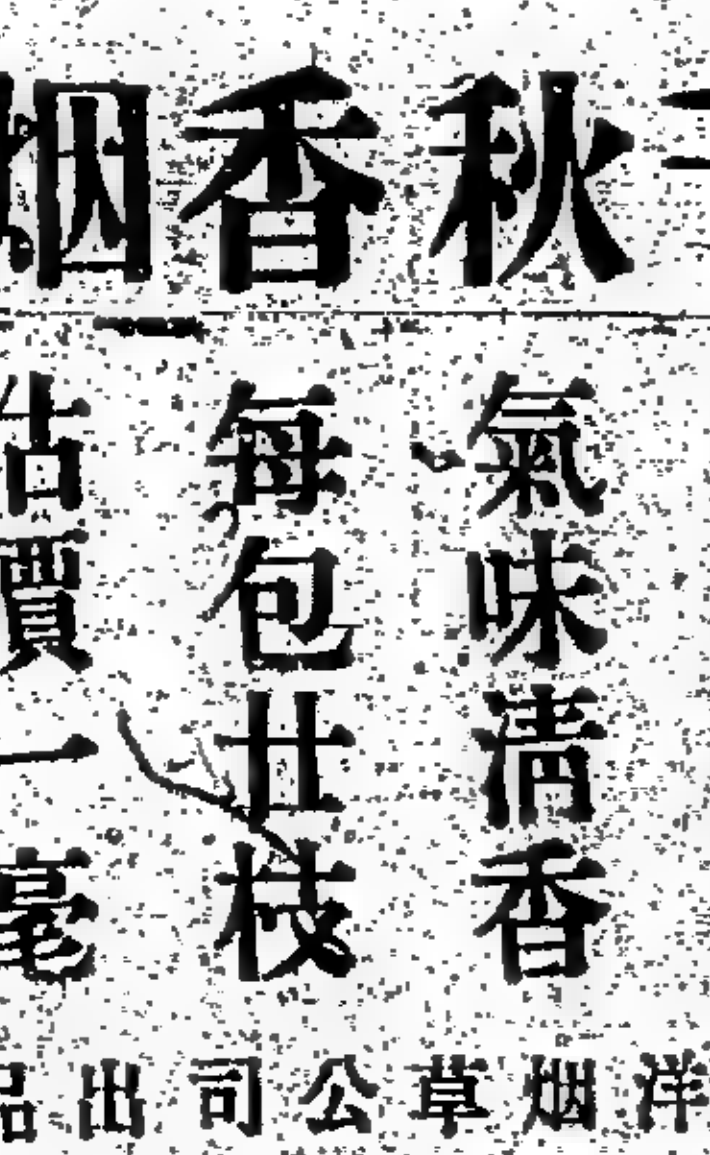 秋香烟
氣味清香
每包廿枝
估價一毫
洋烟草公司出品